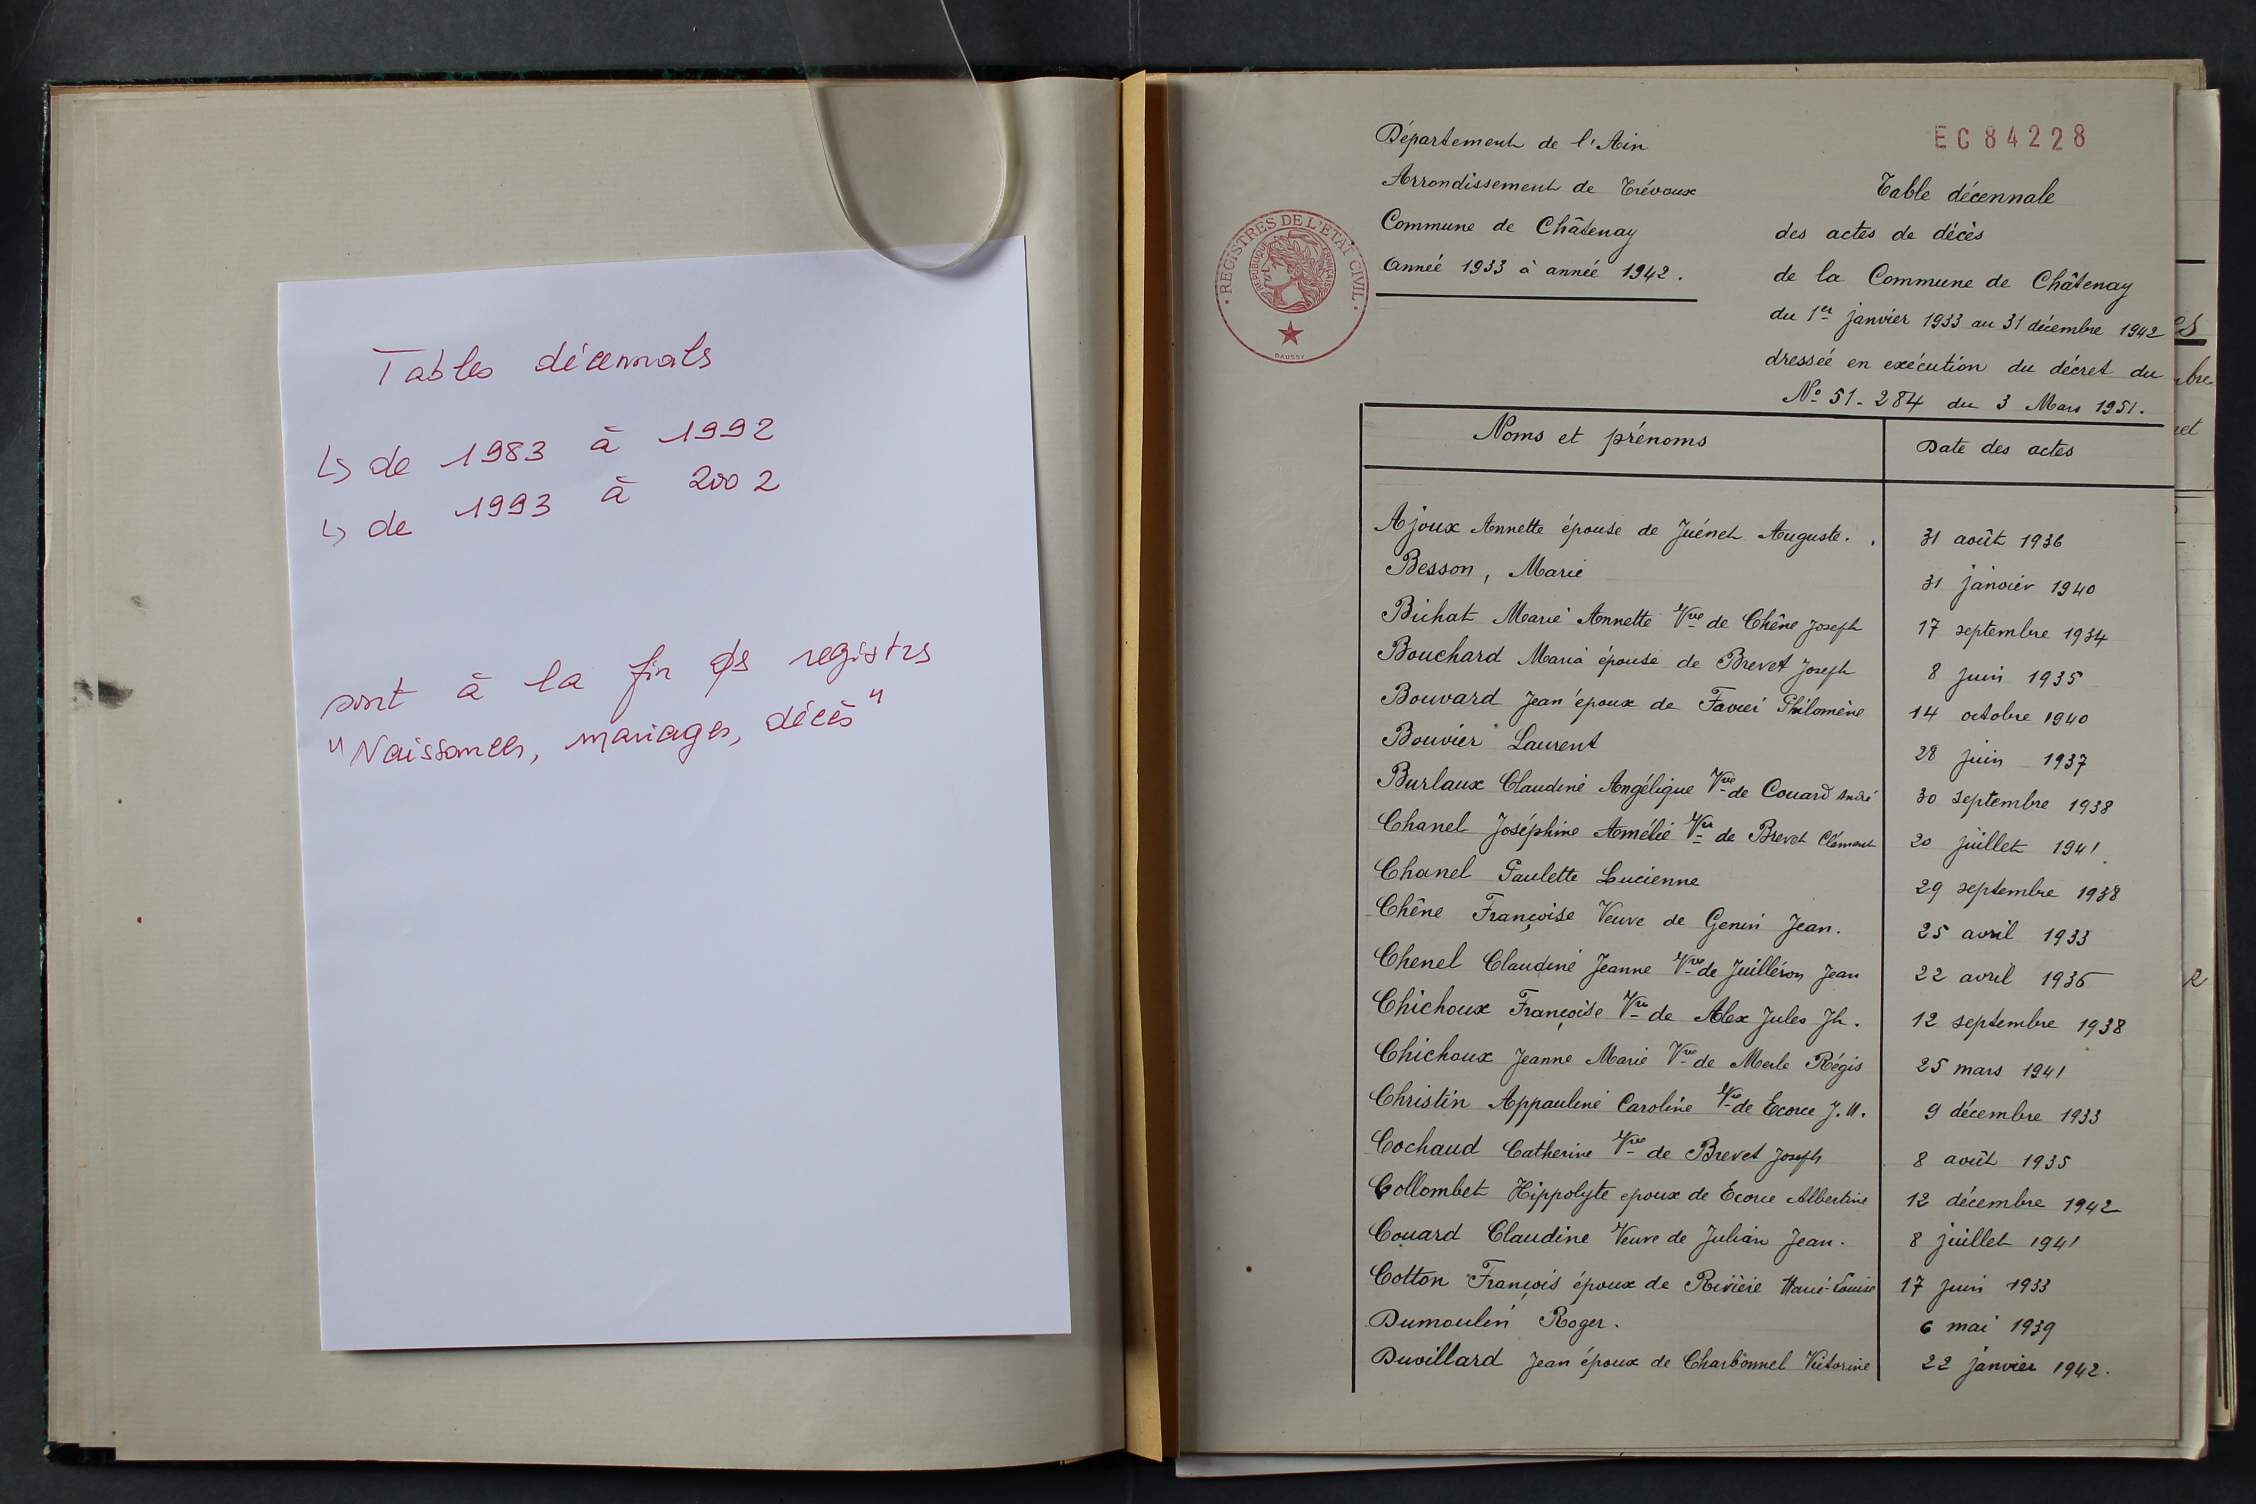 Tables décennals
↳ de 1983 à 1992
↳ de 1993 à 2002
sont à la fin ds registrs
"Naissances, mariages, décès"
Département de l'Ain
Arrondissement de Trévoux
Commune de Châtenay
Année 1933 à année 1942.
REGISTRES DE L'ETAT CIVIL
REPUBLIQUE FRANÇAISE
DAUSSY
EC84228
Table décennale
des actes de décès
de la Commune de Châtenay
du 1er janvier 1933 au 31 décembre 1942
dressée en exécution du décret du
No 51-284 du 3 Mars 1951.
Noms et prénoms Date des actes
Ajoux Annette épouse de Juénet Auguste. 31 août 1936
Besson, Marie 31 janvier 1940
Bichat Marie Annette Vve de Chêne Joseph 17 septembre 1934
Bouchard Maria épouse de Brevet Joseph 8 juin 1935
Bouvard Jean époux de Favier Philomène 14 octobre 1940
Bouvier Laurent 28 juin 1937
Burlaux Claudine Angélique Vve de Couard André 30 septembre 1938
Chanel Joséphine Amélie Vve de Brevet Clément 20 juillet 1941
Chanel Paulette Lucienne 29 septembre 1938
Chêne Françoise Veuve de Genin Jean. 25 avril 1933
Chenel Claudine Jeanne Vve de Juilléron Jean 22 avril 1936
Chichoux Françoise Vve de Alex Jules Jh. 12 septembre 1938
Chichoux Jeanne Marie Vve de Merle Régis 25 mars 1941
Christin Appauline Caroline Vve de Ecorce J. 9 décembre 1933
Cochaud Catherine Vve de Brevet Joseph 8 août 1935
Collombet Hippolyte epoux de Écorce Albertine 12 décembre 1942
Couard Claudine Veuve de Julian Jean. 8 juillet 1941
Cotton François époux de Rivière Marie-Louise 17 juin 1933
Dumoulin Roger. 6 mai 1939
Duvillard Jean époux de Charbonnel Victorine 22 janvier 1942.